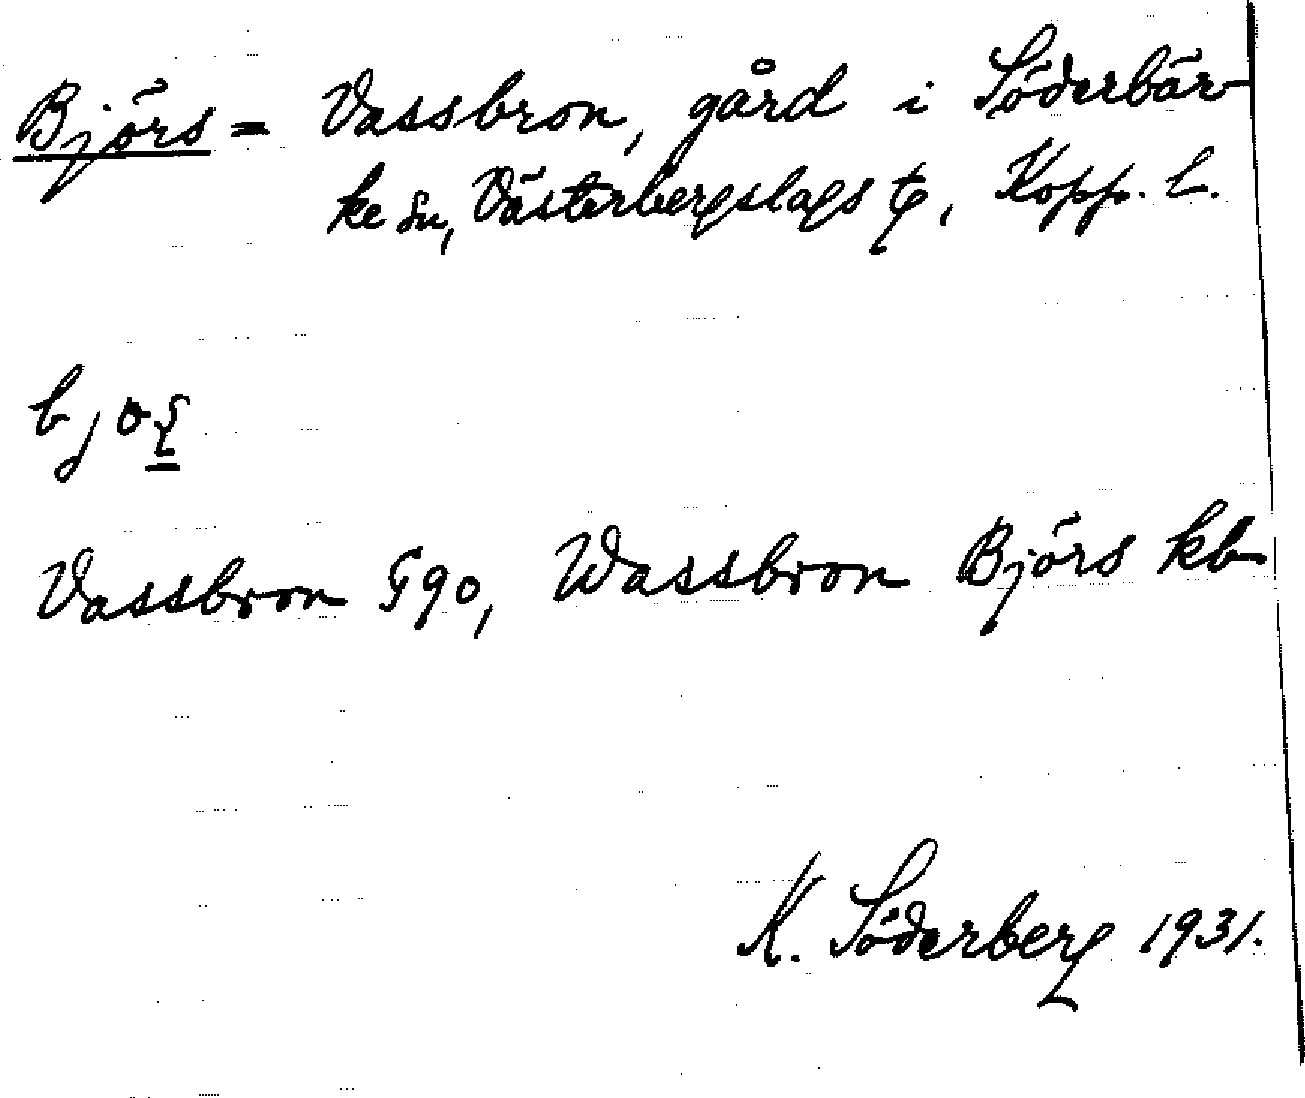 Björs = Vassbron, gård i Söderbär-
ke sn, Västerbergslags tg, Kopp. l.
Vassbron G90, Wassbron Björs kb
K. Söderberg 1931.